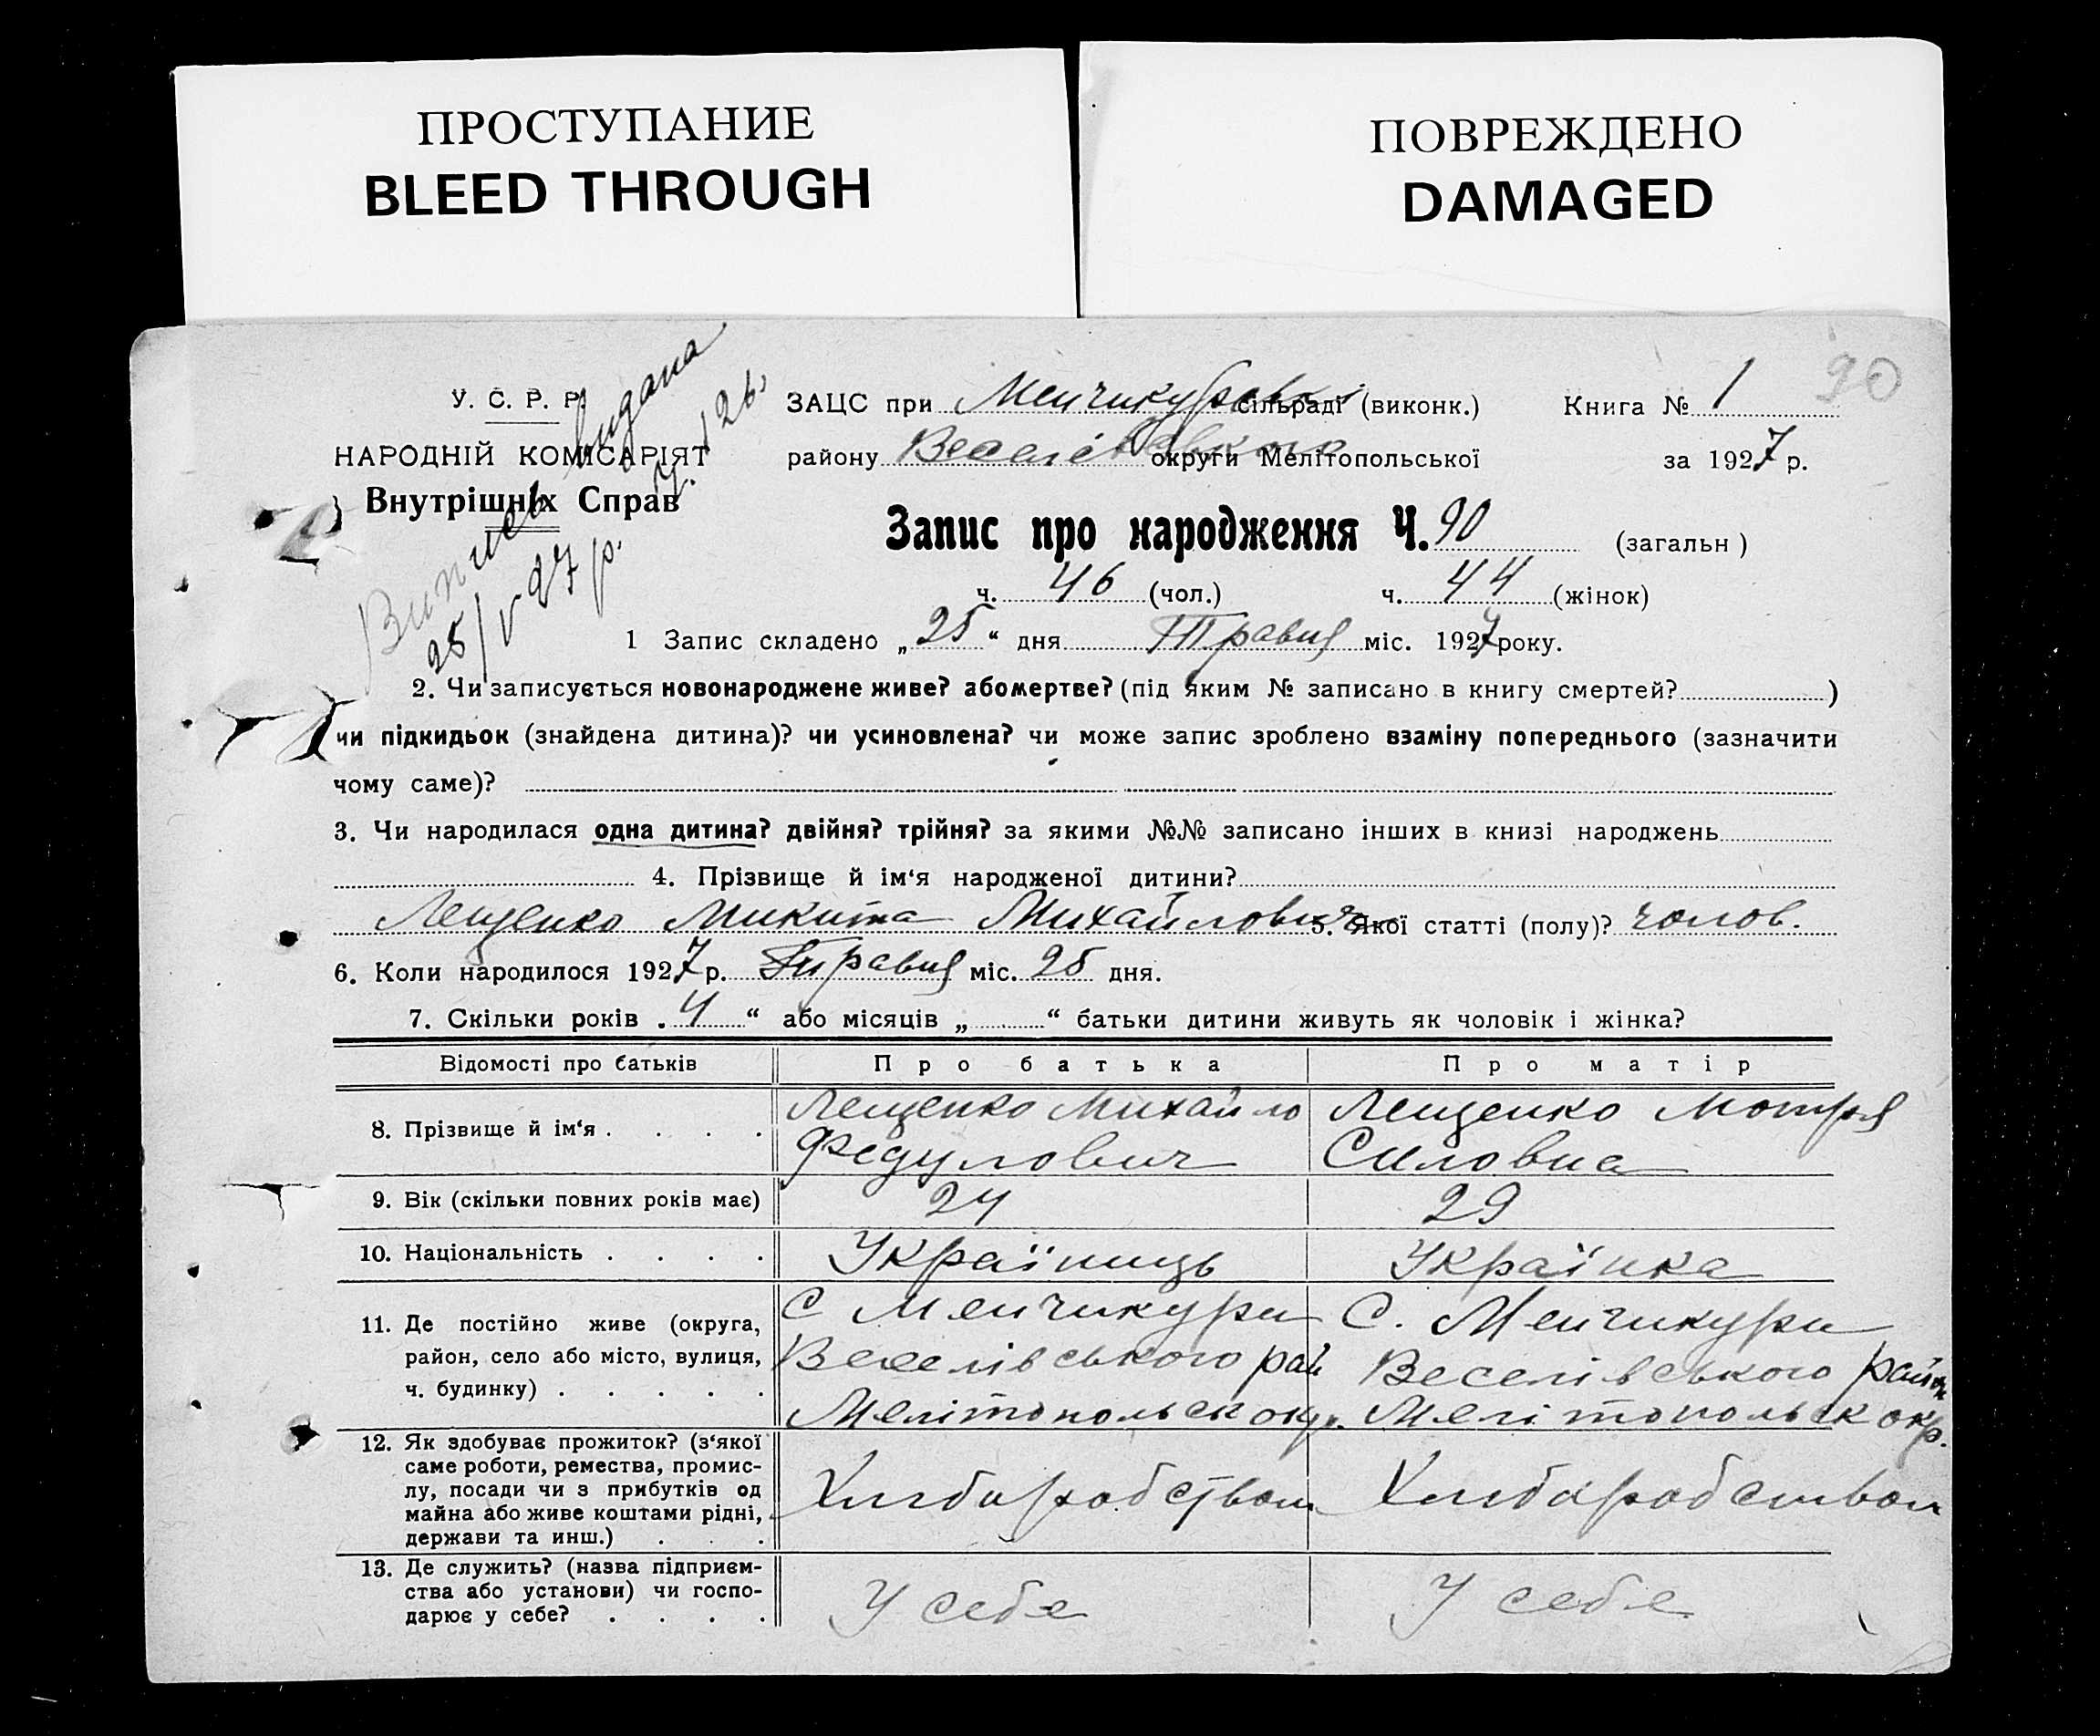 ПРОСТУПАНИЕ
BLEED THROUGH
ПОВРЕЖДЕНО
DAMAGED
90
У. С. Р. Р.
НАРОДНІЙ КОМІСАРІЯТ
Внутрішніх Справ
Випись видана
25/V 27 р.
ЗАЦС при Менчикурівськ сільраді (виконк.) Книга № 1
району Веселівського округи Мелітопольської за 1927 р.
Запис про народження Ч. 90 (загальн )
ч. 46 (чол.) ч. 44 (жінок)
1 Запис складено „ 25 “ дня Травня міс. 1927 року.
2. Чи записується новонароджене живе? або мертве? (під яким № записано в книгу смертей? )
чи підкидьок (знайдена дитина)? чи усиновлена? чи може запис зроблено взаміну попереднього (зазначити
чому саме)?
3. Чи народилася одна дитина? двійня? трійня? за якими №№ записано інших в книзі народжень
4. Прізвище й ім‘я народженої дитини?
Лещенко Микита Михайлович 5. Якої статті (полу)? чолов.
6. Коли народилося 1927 р. Травня міс. 25 дня.
7. Скільки років „ 4 “ або місяців „ “ батьки дитини живуть як чоловік і жінка?
Відомості про батьків Про батька Про матір
8. Прізвище й ім‘я . . . . Лещенко Михайло Федулович Лещенко Мотря Силовна
9. Вік (скільки повних років має) 24 29
10. Національність . . . . Українець Українка
11. Де постійно живе (округа,
район, село або місто, вулиця,
ч. будинку) . . . . .
С Менчикури
Веселівського рай
Мелітопольськ окр.
С. Менчикури
Веселівського район
Мелітопольськ окр.
12. Як здобуває прожиток? (з‘якої
саме роботи, ремества, промис-
лу, посади чи з прибутків од
майна або живе коштами рідні,
держави та инш.) . . .
Хлібаробством
Хлібаробством
13. Де служить? (назва підприєм-
ства або установи) чи госпо-
дарює у себе? . . . .
У себе
У себе